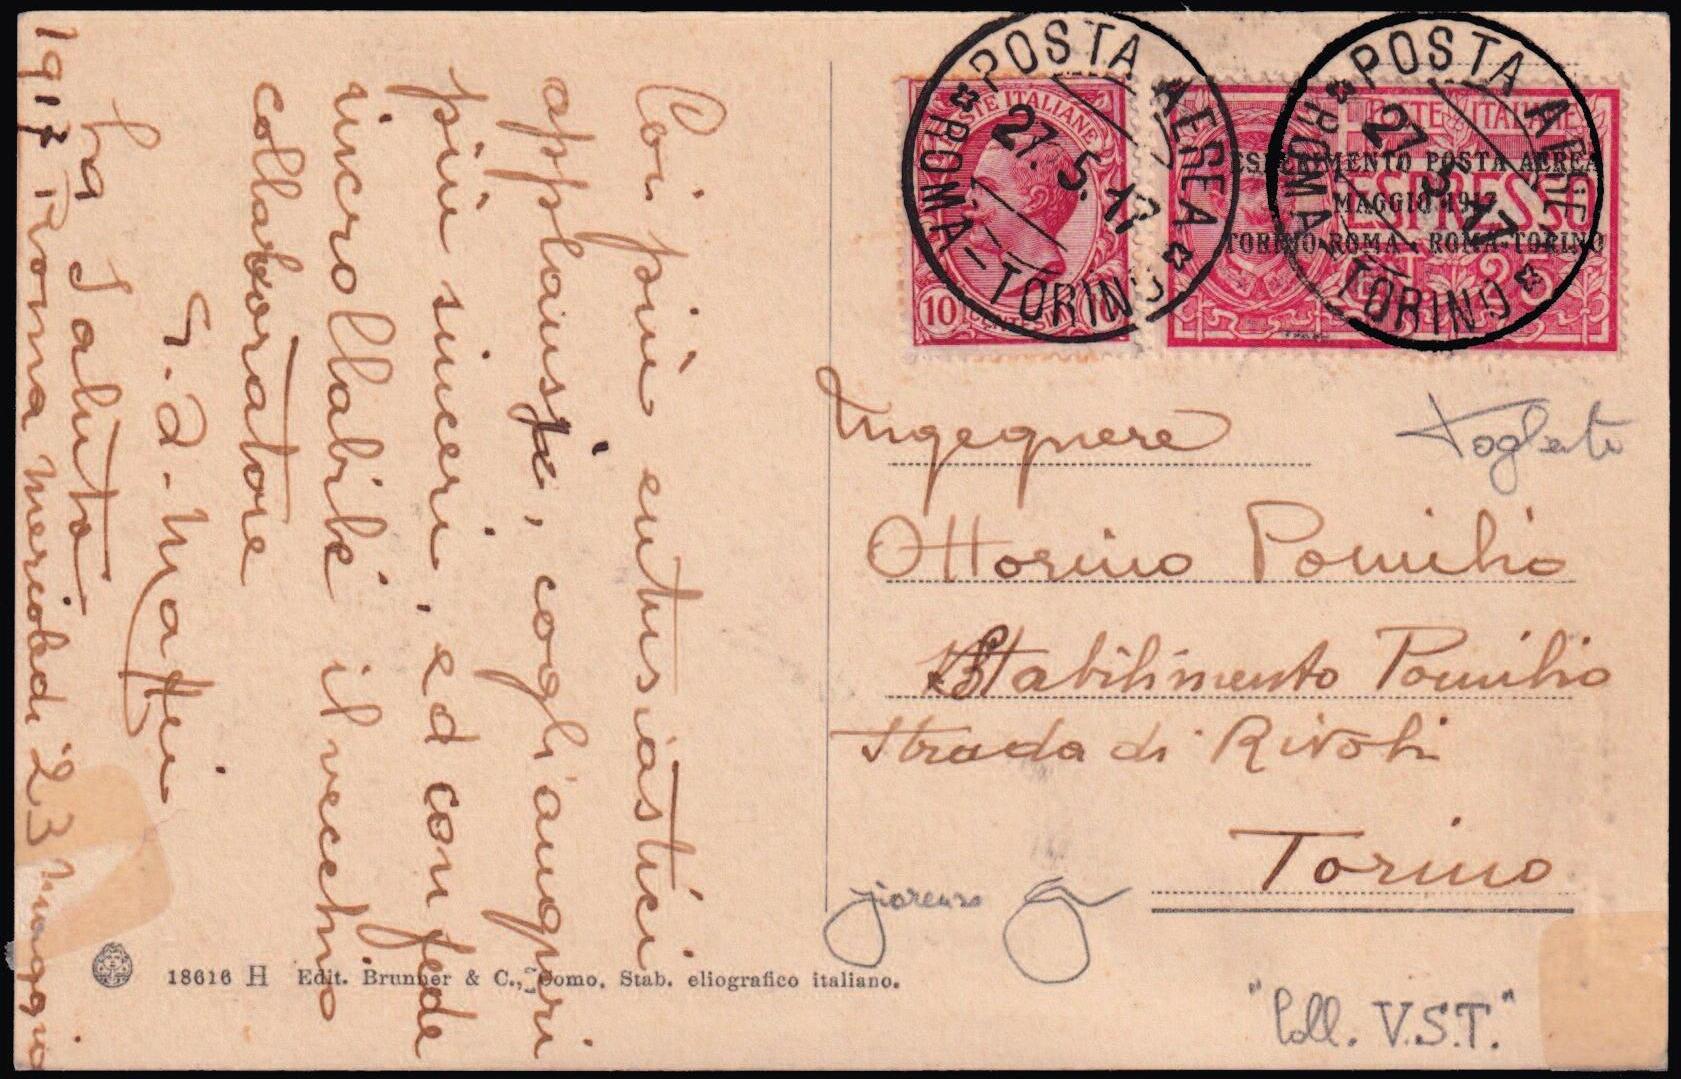 Coi più entusiastici
applausi, cogli auguri
più sinceri, ed con fede
incrollabile il vecchio
collaboratore
G. A. Maffei
La Saluta
1917 Roma Mercoledi 23 Maggio
POSTA AEREA
ROMA-TORINO
27.5.17
POSTE ITALIANE
10
CENTESIMI
POSTA AEREA
ROMA-TORINO
27.5.17
POSTE ITALIANE
ESPERIMENTO POSTA AEREA
MAGGIO 1917
TORINO-ROMA • ROMA-TORINO
ESPRESSO
CENT 25
Ingegnere
Ottorino Pomilio
Stabilimento Pomilio
Strada di Rivoli
Torino
18616 H Edit. Brunner & C., Como. Stab. eliografico italiano.
"Coll. V.S.T."